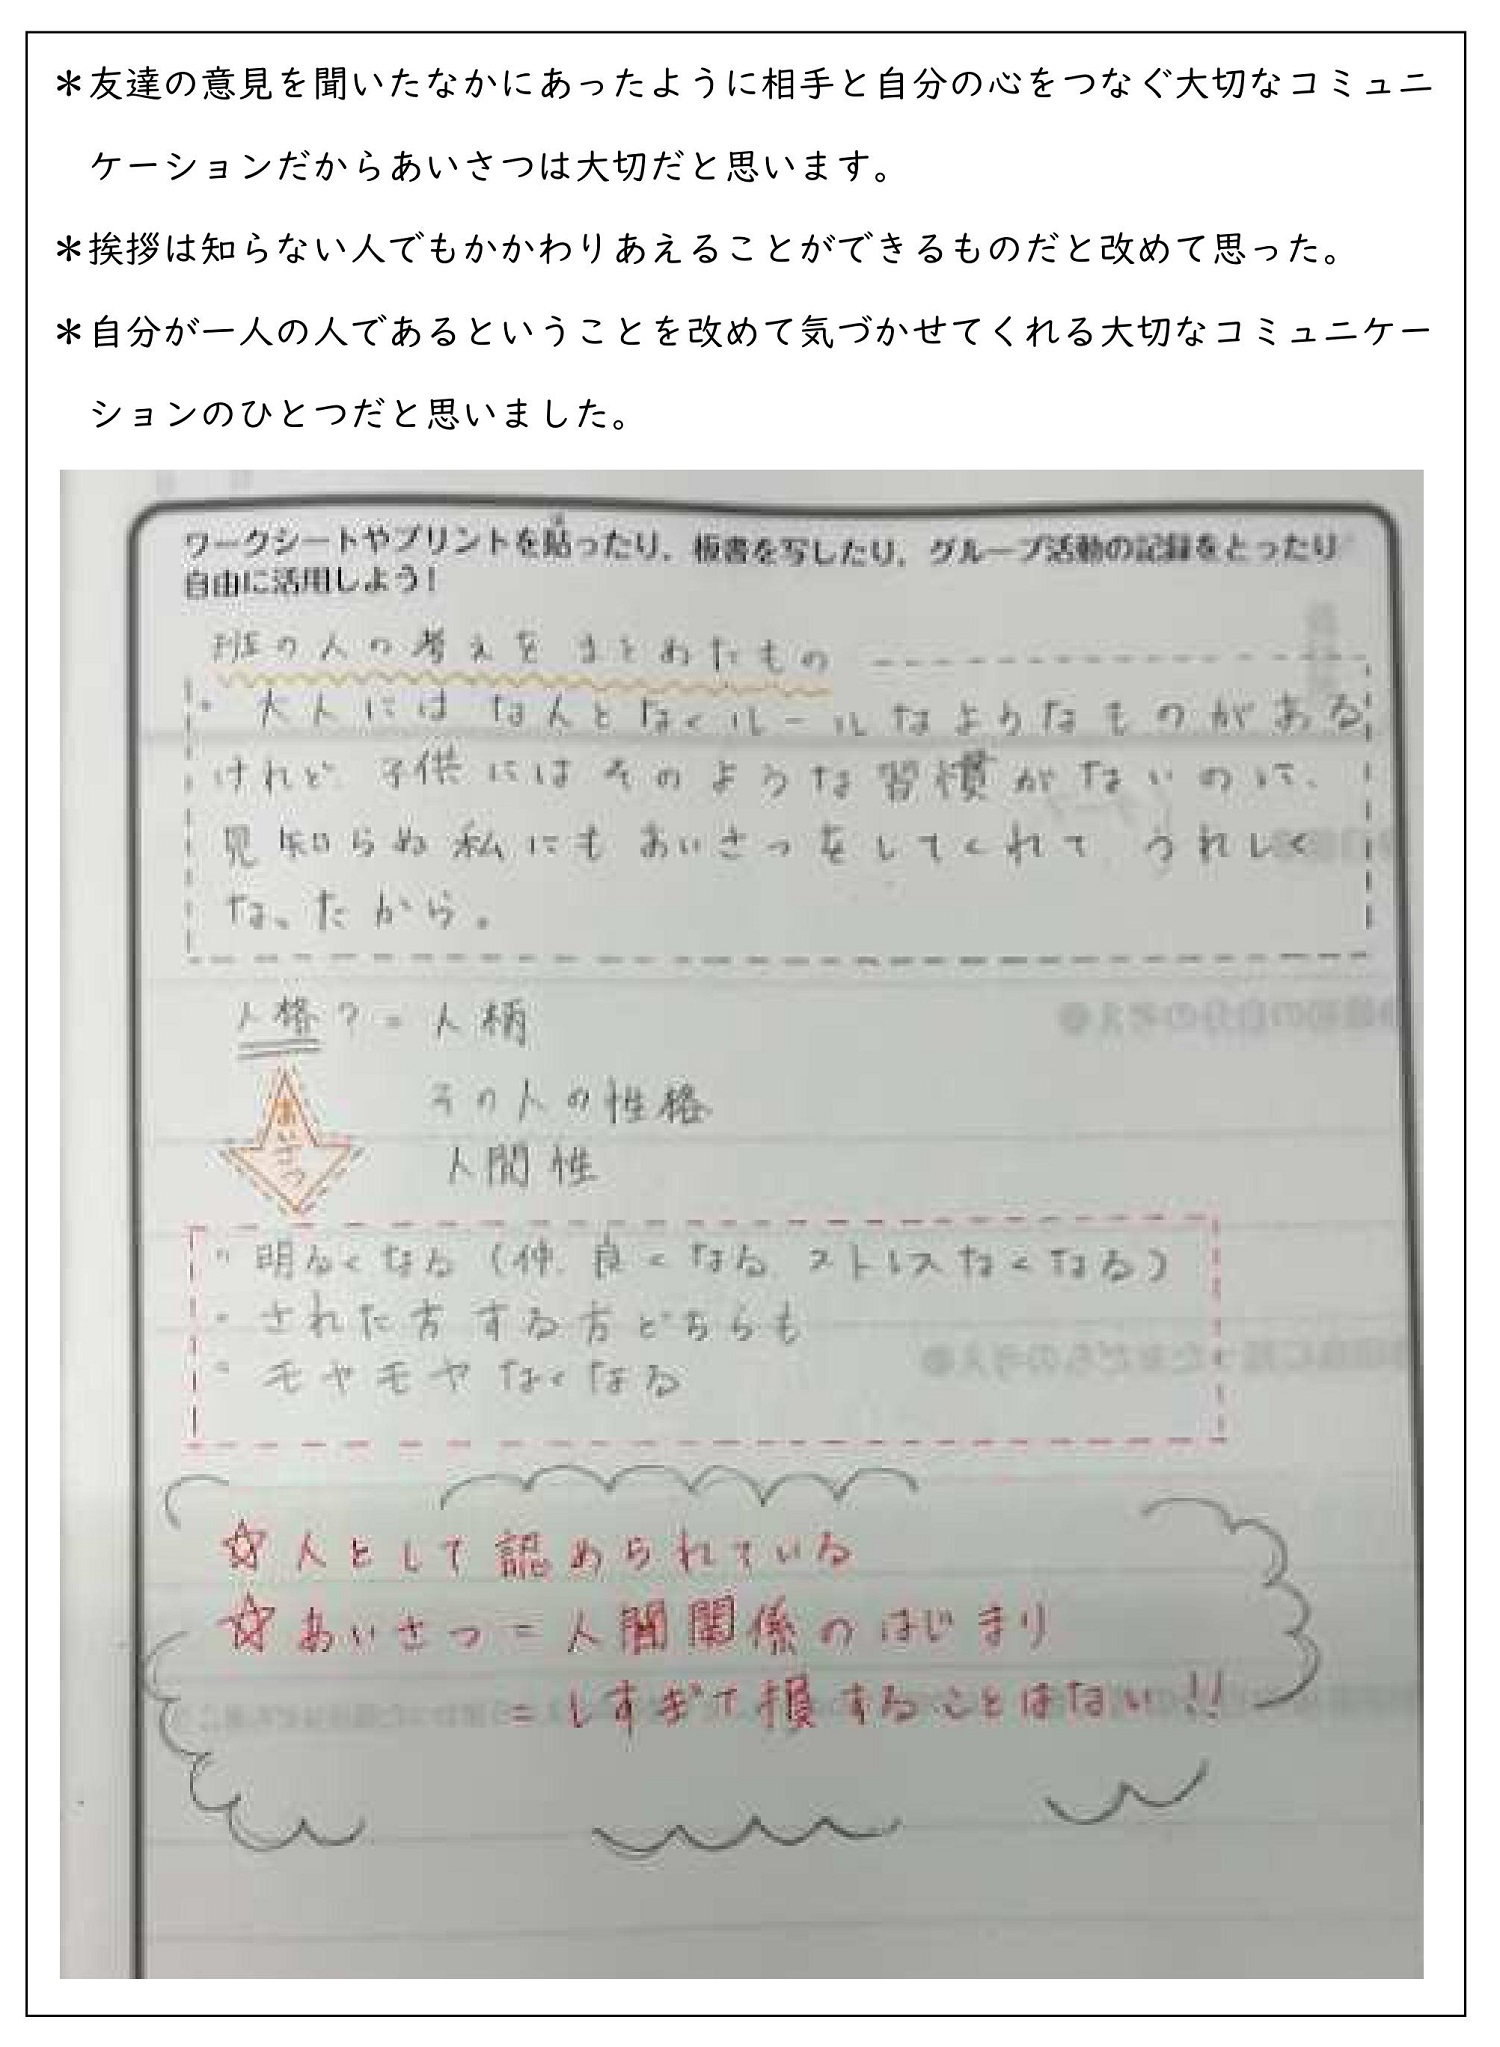 ＊友達の意見を聞いたなかにあったように相手と自分の心をつなぐ大切なコミュニ
ケーションだからあいさつは大切だと思います。
＊挨拶は知らない人でもかかわりあえることができるものだと改めて思った。
＊自分が一人の人であるということを改めて気づかせてくれる大切なコミュニケー
ションのひとつだと思いました。
ワークシートやプリントを貼ったり，板書を写したり，グループ活動の記録をとったり
自由に活用しよう！
班の人の考えをまとめたもの
・大人にはなんとなくルールなようなものがある
けれど、子供にはそのような習慣がないのに、
見知らぬ私にもあいさつをしてくれて、うれしく
なったから。
人格？＝人柄
あいさつ
その人の性格
人間性
・明るくなる（仲良くなる、ストレスなくなる）
・された方する方どちらも
・モヤモヤなくなる
☆人として認められている
☆あいさつ＝人間関係のはじまり
＝しすぎて損することはない!!